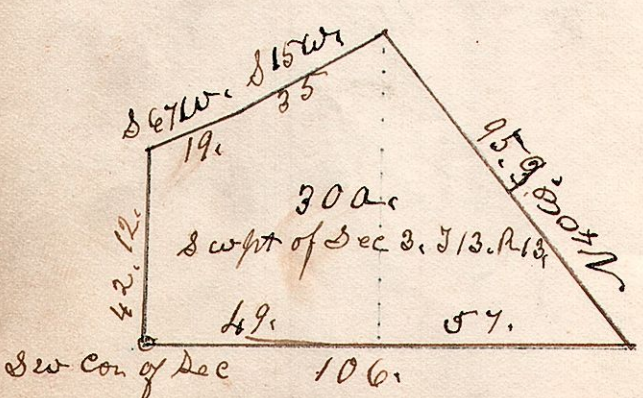 S67W. S15W.
19. 35
42.12.
30a.
S w pt of Sec 3. T13. R13,
49. 57.
Sw Con of Sec 106.